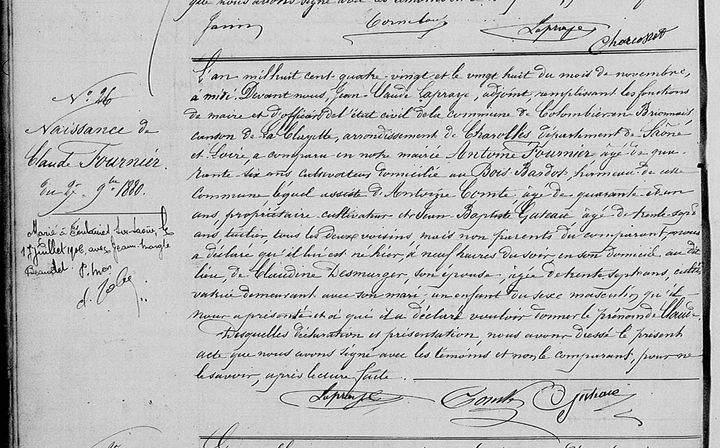 que nous avons signé avec les témoins
Janin Laprage
Charcosset
N° 26
Naissance de
Claude Fournier
du 27 9bre 1880.
Marié à
1er Juillet 1908, avec Jeanne Margte
Beaudet
L'an mil huit cent quatre-vingt et le vingt huit du mois de novembre,
à midi. Devant nous, Jean-Claude Laprage, adjoint, remplissant les fonctions
de maire et d'officier de l'état civil de la commune de Colombier en Brionnais
canton de La Clayette, arrondissement de Charolles, département de Saône
et Loire, a comparu en notre mairie Antoine Fournier, âgé de qua-
rante six ans cultivateur domicilié au Bois Bardot, hameau de cette
commune, lequel assisté d'Antoine Comte, âgé de quarante et un
ans, propriétaire cultivateur et Jean Baptiste âgé de trente sept
ans, tuilier, tous les deux voisins, mais non parents du comparant, nous
a déclaré qu'il lui est né hier, à neuf heures du soir, en son domicile au dit
lieu, de Claudine Desmurger, son épouse, âgée de trente sept ans, culti-
vatrice demeurant avec son mari un enfant du sexe masculin qu'il
nous a présenté et à qui il a déclaré vouloir donner le prénom de Claude.
Desquelles déclaration et présentation, nous avons dressé le présent
acte que nous avons signé avec les témoins et non le comparant, pour ne
le savoir, après lecture faite.
Laprage Comte